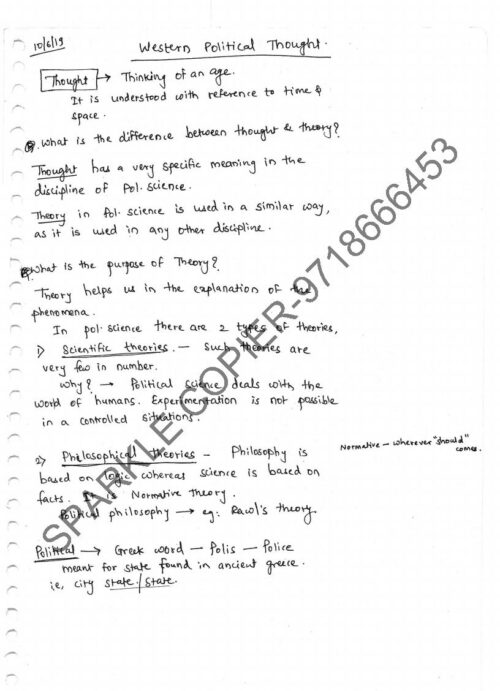 10/6/19
Western Political Thought.
Thought → Thinking of an age.
It is understood with reference to time &
space.
Q. What is the difference between thought & theory?
Thought has a very specific meaning in the
discipline of Pol. science.
Theory in Pol. science is used in a similar way,
as it is used in any other discipline.
Q. What is the purpose of Theory?
Theory helps us in the explanation of the
phenomena.
In pol. science there are 2 types of theories,
1) Scientific theories. — Such theories are
very few in number.
Why? → Political Science deals with the
world of humans. Experimentation is not possible
in a controlled situations.
2) Philosophical theories - Philosophy is
based on logic whereas science is based on
facts. It is Normative theory.
Normative - wherever "should"
comes.
Political philosophy → eg: Rawl's theory.
Political → Greek word - Polis - Police
meant for state found in ancient greece.
ie, city state./state.
SPARKLE COPIER-9718666453